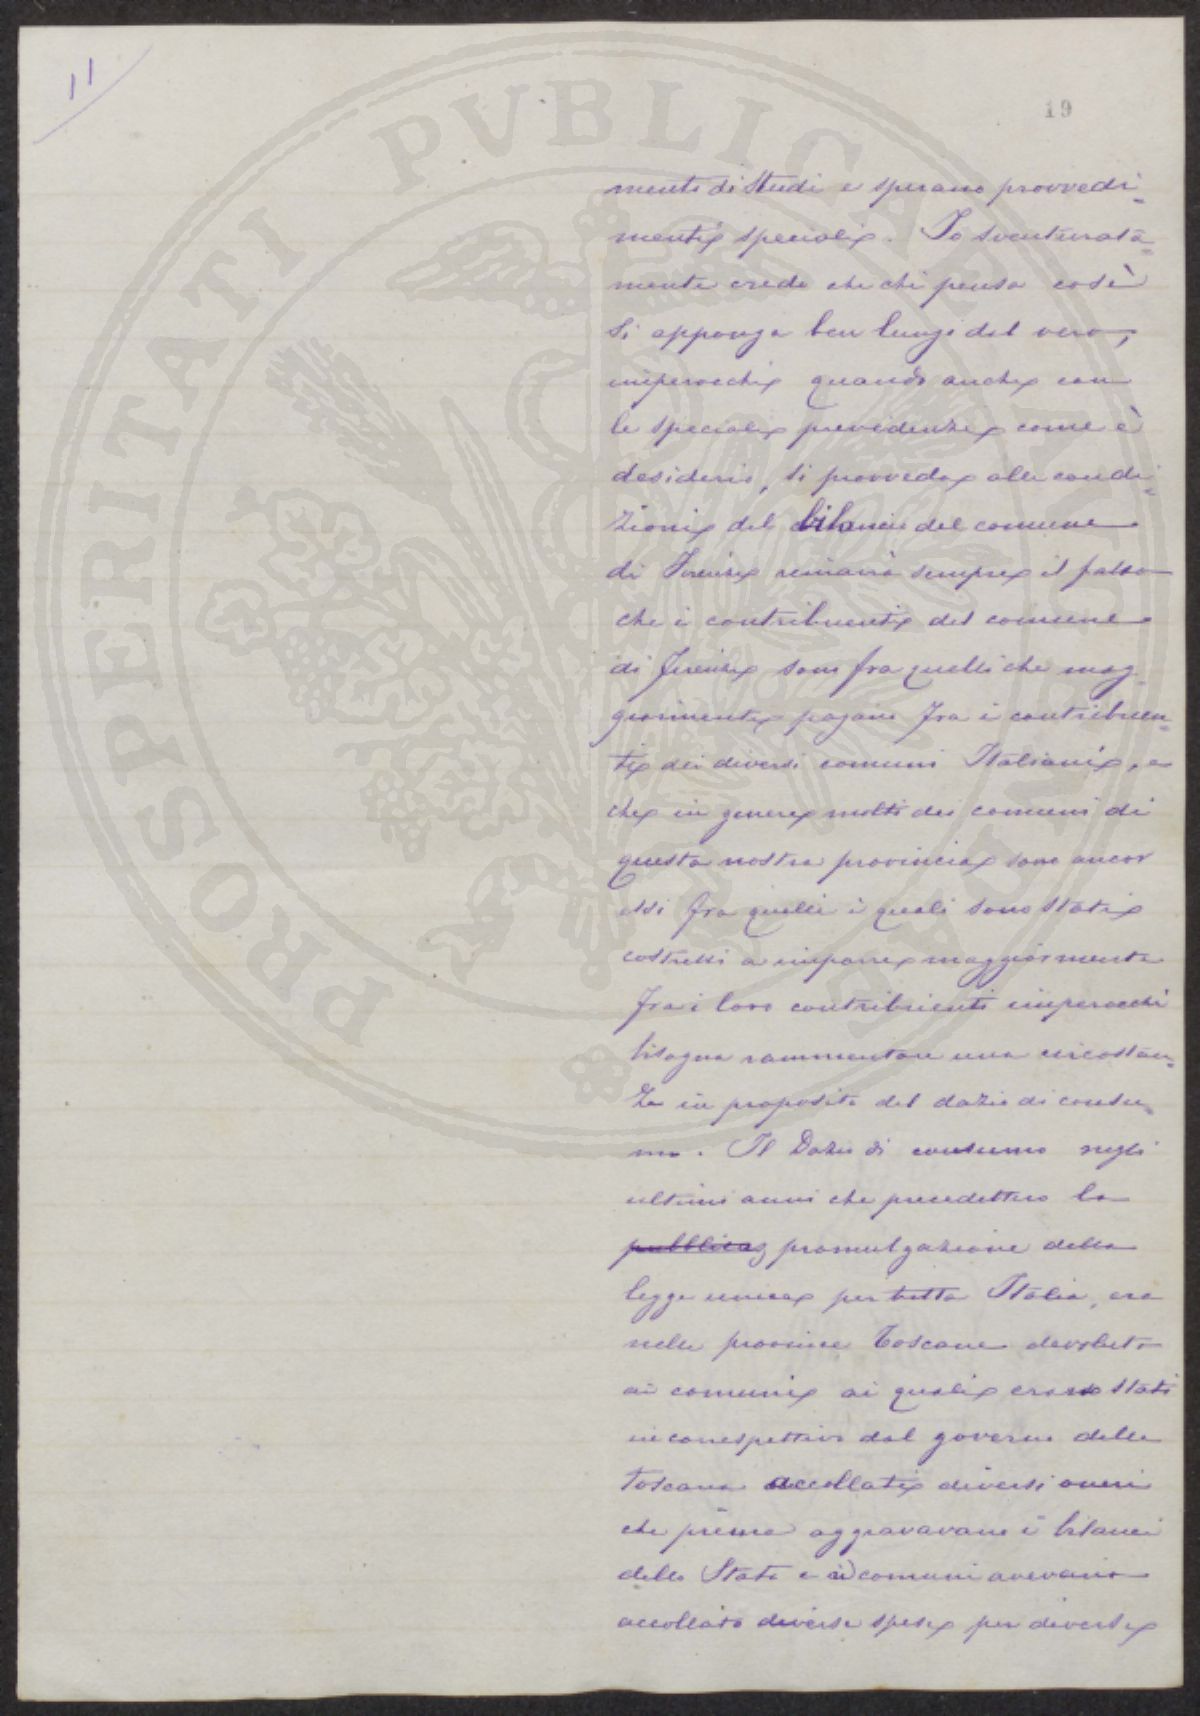 11
19
mento di studi e sperano provvedi-
menti speciali. Io sventurata-
mente credo che chi pensa così
si apponga ben lungi dal vero,
imperocchè quando anche con
le speciali previdenze come è
desiderio, si provveda alle condi-
zioni del bilancio del comune
di Firenze rimarrà sempre il fatto
che i contribuenti del comune
di Firenze sono fra quelli che mag-
giormente pagano fra i contribuen-
ti dei diversi comuni Italiani, e
che in genere molti dei comuni di
questa nostra provincia sono ancor
essi fra quelli i quali sono stati
costretti a imporre maggiormente
fra i loro contribuenti imperocchè
bisogna rammentare una circostan-
za in proposito del dazio di consu-
mo. Il Dazio di consumo negli
ultimi anni che precedettero la
pubblicaz promulgazione della
legge unica per tutta Italia, era
nelle provincie Toscane devoluto
ai comuni ai quali erano stati
in correspettivo dal governo della
Toscana accollati diversi oneri
che prima aggravavano i bilanci
dello Stato e i comuni avevano
accollato diverse spese per diverse
PROSPERITATI PVBLICAE